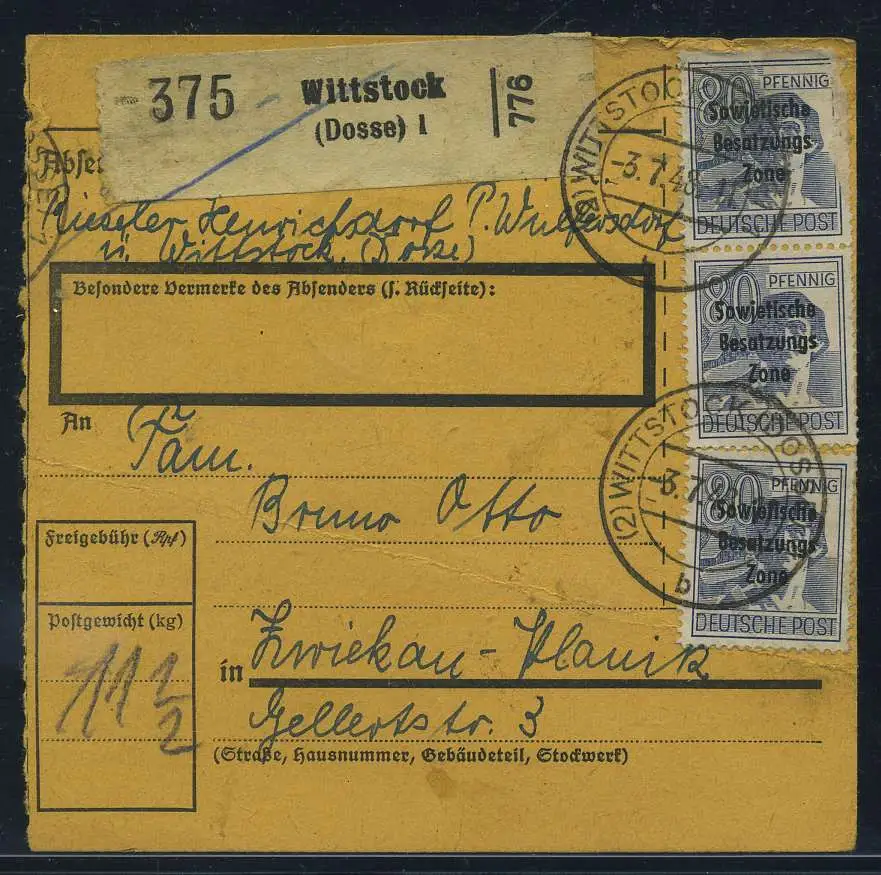 375 Wittstock
(Dosse) 1
776
Absen
Rieseler Henrichsdorf P. Wulfersdorf
ü. Wittstock (Dosse)
Besondere Vermerke des Absenders (s. Rückseite):
An Fam.
Bruno Otto
Freigebühr (Rpf)
Postgewicht (kg)
11 1/2
in Zwickau-Planitz
Gellertstr. 3
(Straße, Hausnummer, Gebäudeteil, Stockwerk)
80 PFENNIG
Sowjetische
Besatzungs
Zone
DEUTSCHE POST
80 PFENNIG
Sowjetische
Besatzungs
Zone
DEUTSCHE POST
80 PFENNIG
Sowjetische
Besatzungs
Zone
DEUTSCHE POST
(2) WITTSTOCK
-3.7.48
(2) WITTSTOCK (DOSSE)
-3.7.48
b